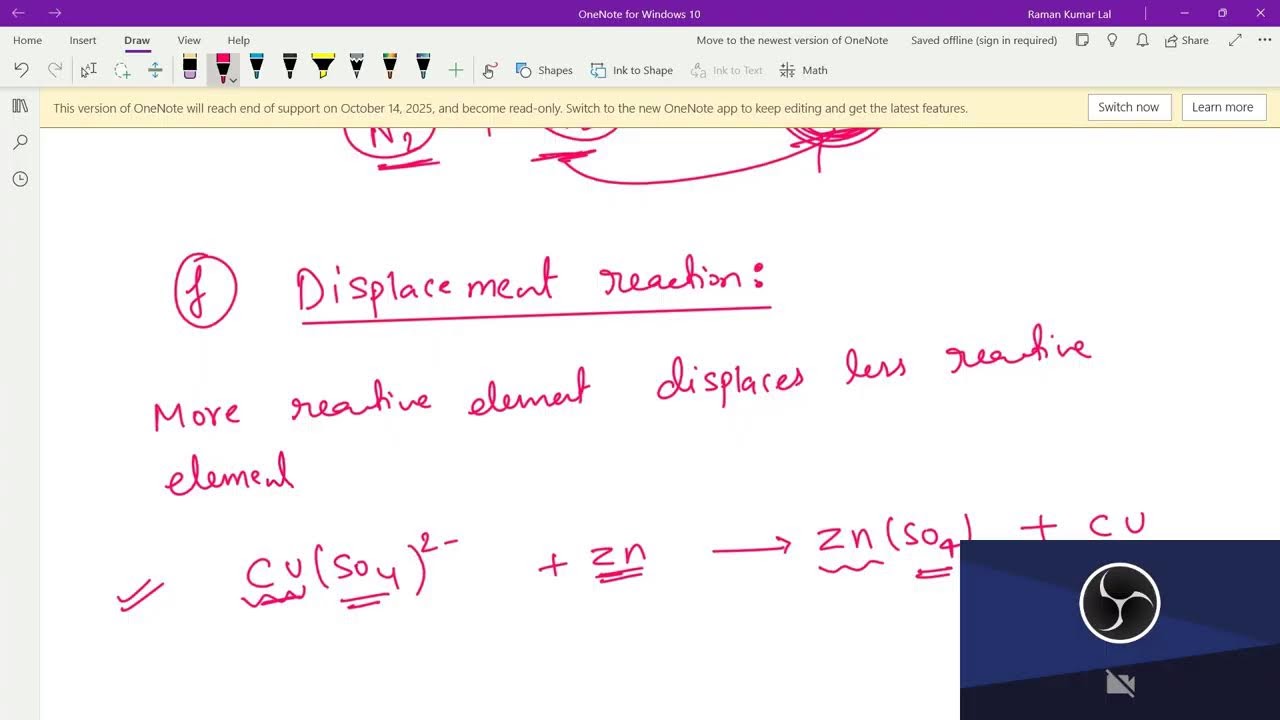 OneNote for Windows 10
Raman Kumar Lal
Home Insert Draw View Help
Move to the newest version of OneNote Saved offline (sign in required) Share
Shapes Ink to Shape Ink to Text Math
This version of OneNote will reach end of support on October 14, 2025, and become read-only. Switch to the new OneNote app to keep editing and get the latest features. Switch now Learn more
N₂ +
f Displacement reaction:
More reactive element displaces less reactive
element
Cu(SO₄)²⁻ + Zn → Zn(SO₄) + Cu